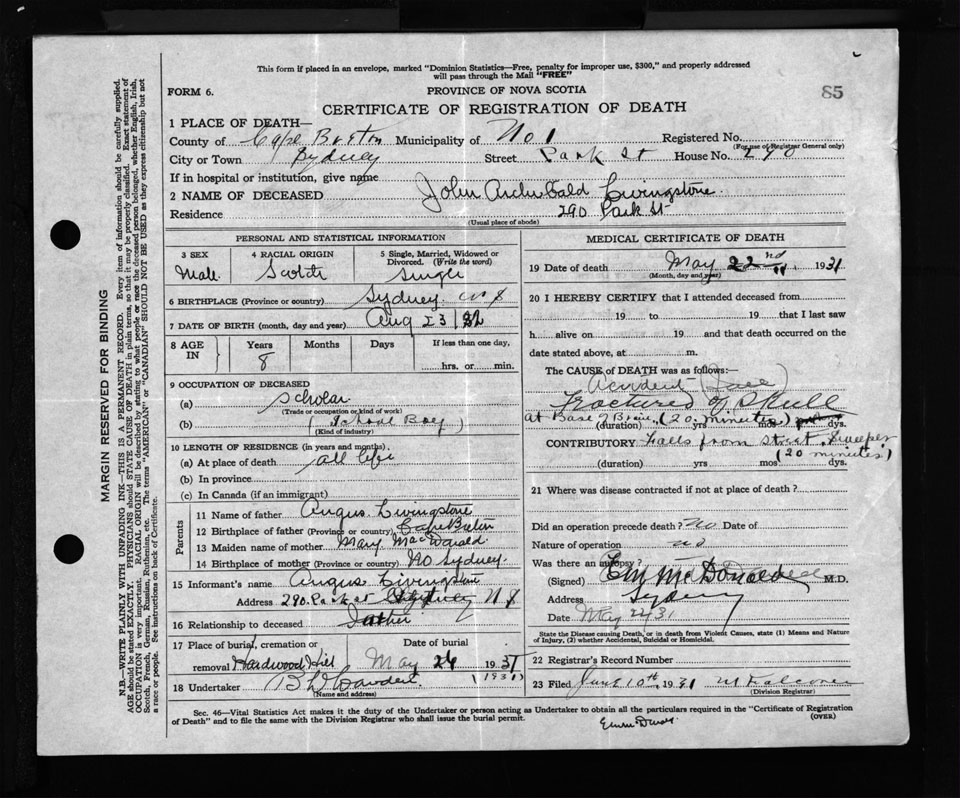 This form if placed in an envelope, marked "Dominion Statistics—Free, penalty for improper use, $300," and properly addressed
will pass through the Mail "FREE"
FORM 6.
PROVINCE OF NOVA SCOTIA
85
CERTIFICATE OF REGISTRATION OF DEATH
1 PLACE OF DEATH—
County of Cape Breton Municipality of No 1 Registered No.
(For use of Registrar General only)
City or Town Sydney Street Park St House No. 290
If in hospital or institution, give name
2 NAME OF DECEASED John Archibald Livingstone
Residence 290 Park St
(Usual place of abode)
PERSONAL AND STATISTICAL INFORMATION
3 SEX Male
4 RACIAL ORIGIN Scotch
5 Single, Married, Widowed or Divorced. (Write the word) Single
6 BIRTHPLACE (Province or country) Sydney N S
7 DATE OF BIRTH (month, day and year) Aug 23/22
8 AGE IN
Years Months Days If less than one day,
8
hrs. or min.
9 OCCUPATION OF DECEASED
(a) Scholar
(Trade or occupation or kind of work)
(b) (School Boy)
(Kind of industry)
10 LENGTH OF RESIDENCE (in years and months).
(a) At place of death all life
(b) In province
(c) In Canada (if an immigrant)
Parents
11 Name of father Angus Livingstone
12 Birthplace of father (Province or country) Cape Breton
13 Maiden name of mother Mary MacDonald
14 Birthplace of mother (Province or country) No Sydney.
15 Informant's name Angus Livingstone
Address 290 Park St Sydney N S
16 Relationship to deceased Father
17 Place of burial, cremation or removal Hardwood Hill
Date of burial May 24 1931
(1931)
18 Undertaker
(Name and address)
MEDICAL CERTIFICATE OF DEATH
19 Date of death May 22nd 1931
(Month, day and year)
20 I HEREBY CERTIFY that I attended deceased from
19 to 19 that I last saw
h alive on 19 and that death occurred on the
date stated above, at m.
The CAUSE of DEATH was as follows:—
Accident
Fractured of Skull
At Base of Brain, (20 minutes)
(duration) yrs mos dys.
CONTRIBUTORY Falls from street sweeper
(20 minutes)
(duration) yrs mos dys.
21 Where was disease contracted if not at place of death?
Did an operation precede death? No Date of
Nature of operation no
Was there an autopsy?
(Signed) McDonald M.D.
Address Sydney
Date May 22/31
State the Disease causing Death, or in death from Violent Causes, state (1) Means and Nature of Injury, (2) whether Accidental, Suicidal or Homicidal.
22 Registrar's Record Number
23 Filed June 10th, 1931 M Falconer
(Division Registrar)
Sec. 46—Vital Statistics Act makes it the duty of the Undertaker or person acting as Undertaker to obtain all the particulars required in the "Certificate of Registration
of Death" and to file the same with the Division Registrar who shall issue the burial permit.
(OVER)
MARGIN RESERVED FOR BINDING
N.B.—WRITE PLAINLY WITH UNFADING INK—THIS IS A PERMANENT RECORD. Every item of information should be carefully supplied.
AGE should be stated EXACTLY. PHYSICIANS should STATE CAUSE OF DEATH in plain terms, so that it may be properly classified. Exact statement of
OCCUPATION is very important. RACIAL ORIGIN will be described by stating to what people or race the deceased person belonged, whether English, Irish,
Scotch, French, German, Russian, Ruthenian, etc. The terms "AMERICAN" or "CANADIAN" SHOULD NOT BE USED as they express citizenship but not
a race or people. See instructions on back of Certificate.